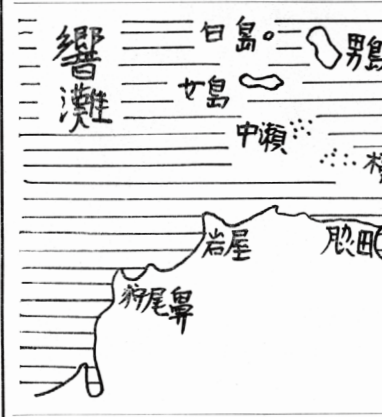 響灘
白島
男島
女島
中瀬
岩屋
脇田
狩尾鼻